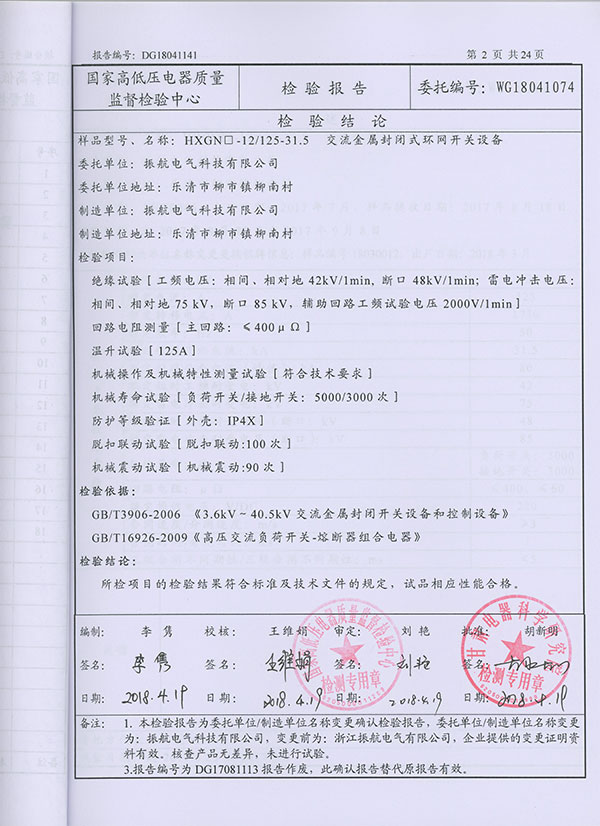 报告编号: DG18041141
第 2 页 共 24 页
国家高低压电器质量
监督检验中心
检 验 报 告
委托编号: WG18041074
检 验 结 论
样品型号、名称: HXGN□-12/125-31.5 交流金属封闭式环网开关设备
委托单位: 振航电气科技有限公司
委托单位地址: 乐清市柳市镇柳南村
制造单位: 振航电气科技有限公司
制造单位地址: 乐清市柳市镇柳南村
检验项目:
绝缘试验[工频电压: 相间、相对地 42kV/1min, 断口 48kV/1min; 雷电冲击电压:
相间、相对地 75 kV, 断口 85 kV, 辅助回路工频试验电压 2000V/1min]
回路电阻测量[主回路: ≤400μΩ]
温升试验[125A]
机械操作及机械特性测量试验[符合技术要求]
机械寿命试验[负荷开关/接地开关: 5000/3000 次]
防护等级验证[外壳: IP4X]
脱扣联动试验[脱扣联动:100 次]
机械震动试验[机械震动:90 次]
检验依据:
GB/T3906-2006 《3.6kV~40.5kV 交流金属封闭开关设备和控制设备》
GB/T16926-2009《高压交流负荷开关-熔断器组合电器》
检验结论:
所检项目的检验结果符合标准及技术文件的规定, 试品相应性能合格。
编制: 李 隽 校核: 王维娟 审定: 刘 艳 批准: 胡新明
签名: 李隽 签名: 王维娟 签名: 刘艳 签名:
日期: 2018.4.19 日期: 2018.4.19 日期: 2018.4.19 日期: 2018.4.19
国家高低压电器质量监督检验中心
检测专用章
甘肃电器科学研究院
检测专用章
备注: 1. 本检验报告为委托单位/制造单位名称变更确认检验报告, 委托单位/制造单位名称变更
为: 振航电气科技有限公司, 变更前为: 浙江振航电气有限公司, 企业提供的变更证明资
料有效。核查产品无差异, 未进行试验。
3.报告编号为 DG17081113 报告作废, 此确认报告替代原报告有效。